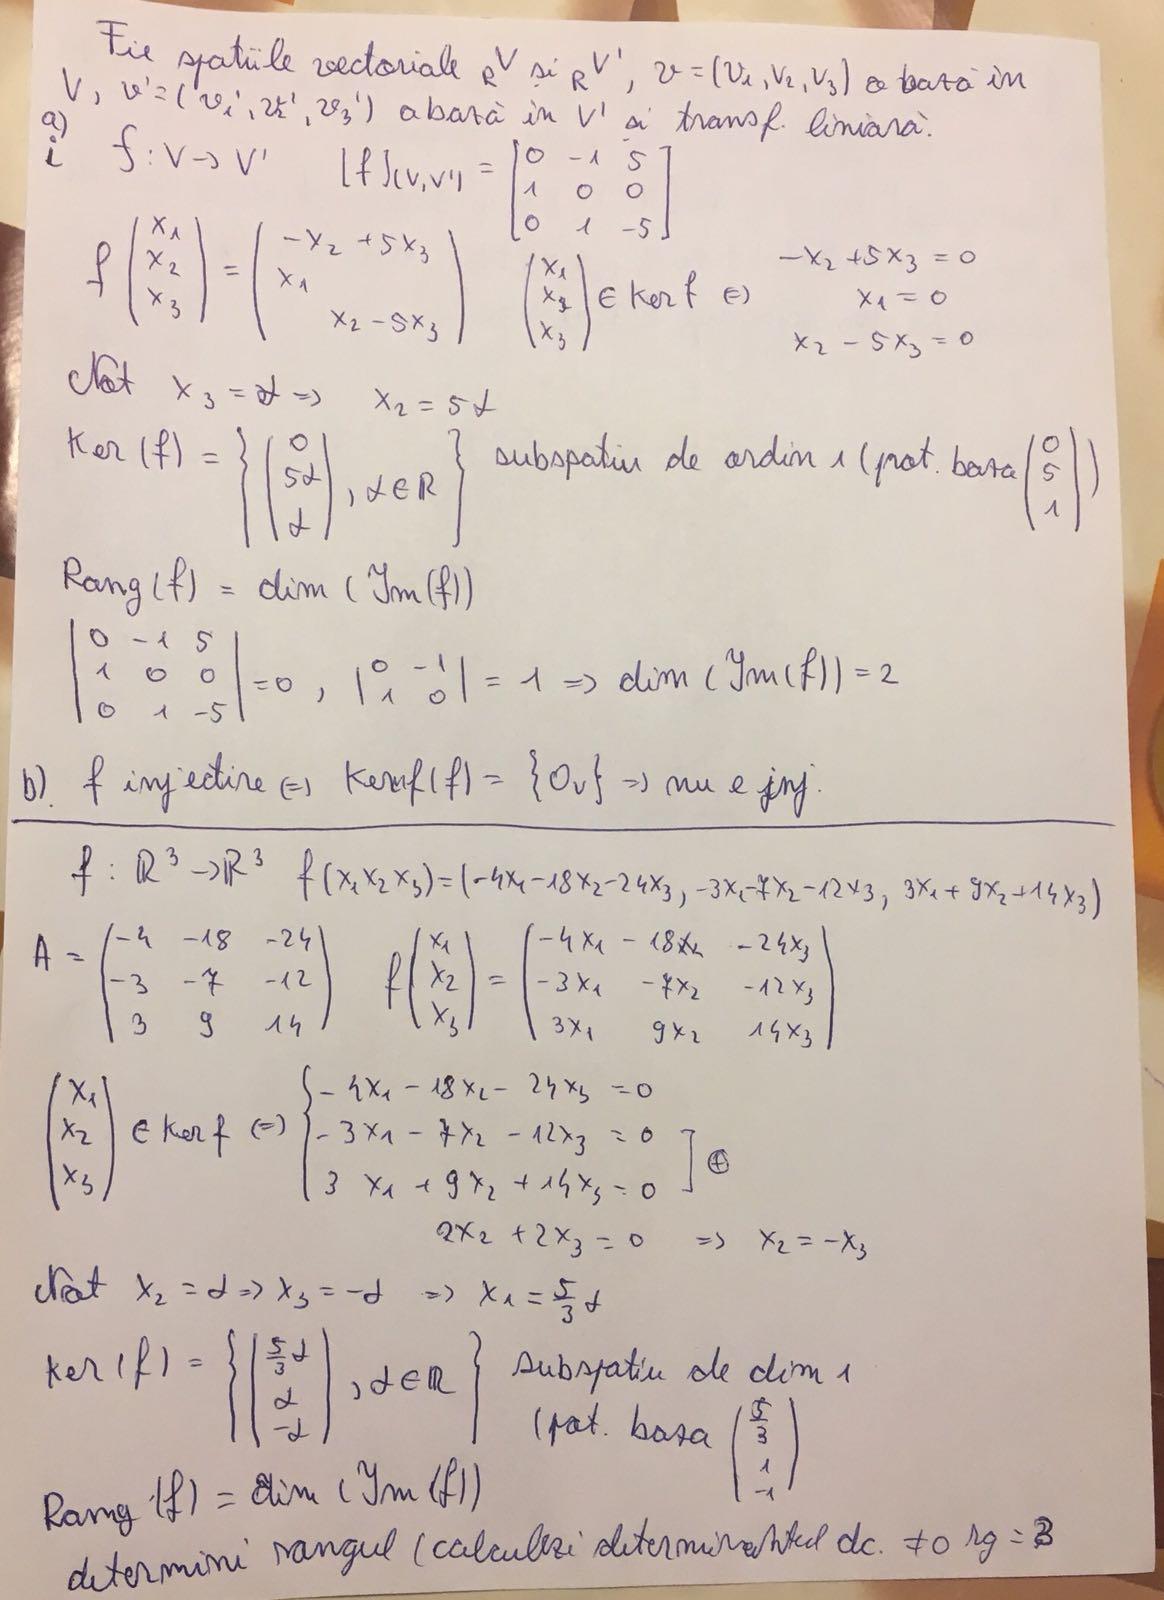 Fie spatiile vectoriale ᵣV si ᵣV', v = (v₁, v₂, v₃) o bază în
V, v' = (v₁', v₂', v₃') o bază în V' si transf. liniară.
a)
i f : V → V' [f](V,V') = [0 -1 5
1 0 0
0 1 -5]
f (x₁ x₂ x₃) = (-x₂ + 5x₃
x₁
x₂ - 5x₃) (x₁ x₂ x₃) ∈ Ker f ⇔ -x₂ + 5x₃ = 0
x₁ = 0
x₂ - 5x₃ = 0
Not x₃ = α ⇒ x₂ = 5α
Ker (f) = {(0 5α α), α ∈ ℝ} subspatiu de ordin 1 (pot. baza (0 5 1))
Rang (f) = dim (Im(f))
|0 -1 5
1 0 0
0 1 -5| = 0, |0 -1
1 0| = 1 ⇒ dim (Im(f)) = 2
b). f injective ⇔ Kerf(f) = {0ᵥ} ⇒ nu e inj.
f : ℝ³ → ℝ³ f(x₁ x₂ x₃) = (-4x₁ - 18x₂ - 24x₃, -3x₁ - 7x₂ - 12x₃, 3x₁ + 9x₂ + 14x₃)
A = (-4 -18 -24
-3 -7 -12
3 9 14) f (x₁ x₂ x₃) = (-4x₁ - 18x₂ - 24x₃
-3x₁ -7x₂ -12x₃
3x₁ 9x₂ 14x₃)
(x₁ x₂ x₃) ∈ Ker f ⇔ { -4x₁ - 18x₂ - 24x₃ = 0
-3x₁ - 7x₂ - 12x₃ = 0
3x₁ + 9x₂ + 14x₃ = 0 ] ⊕
2x₂ + 2x₃ = 0 ⇒ x₂ = -x₃
Not x₂ = α ⇒ x₃ = -α ⇒ x₁ = 5/3 α
Ker (f) = {(5/3 α α -α), α ∈ ℝ} subspatiu de dim 1
(pot. baza (5/3 1 -1)
Rang (f) = dim (Im(f))
determini rangul (calculezi determinantul dc. ≠0 rg = 3